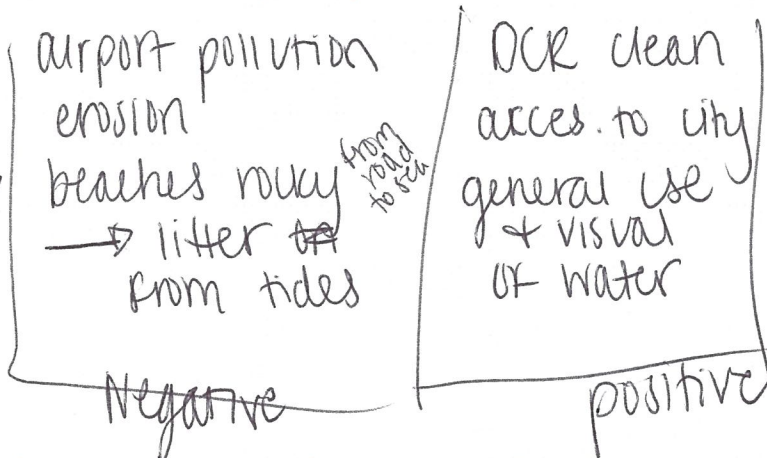 airport pollution
erosion
beaches rocky
from
road
to sea
→ litter
from tides
Negative
DCR clean
acces. to city
general use
& visual
of water
positive